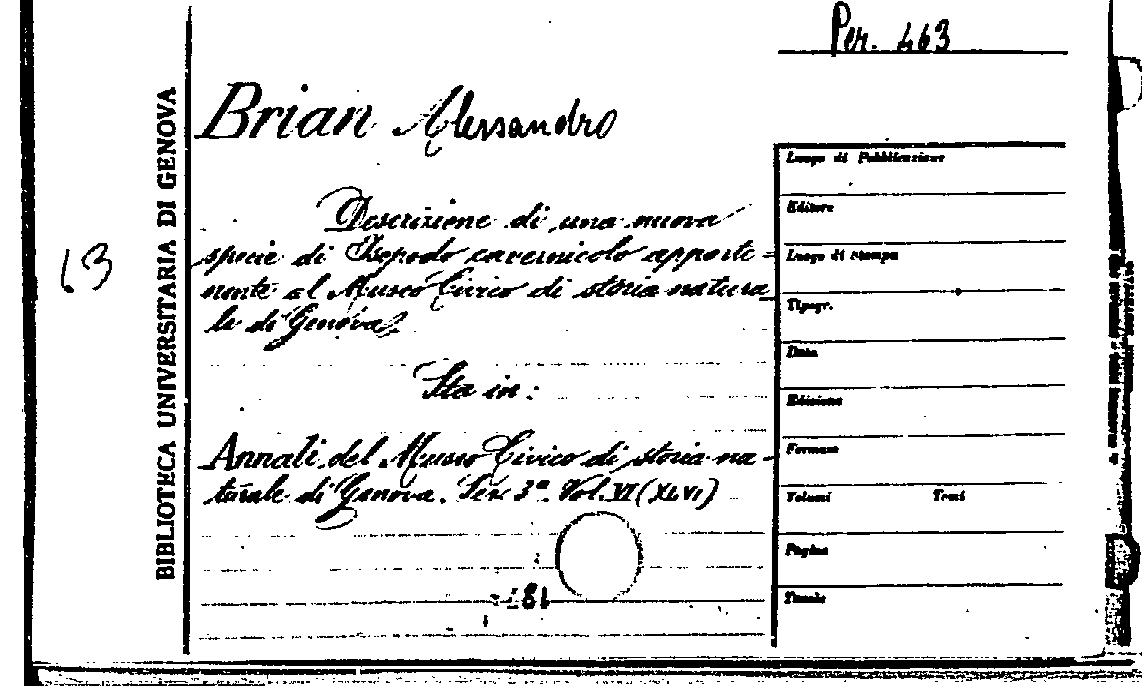 Per. 463
Brian Alessandro
Descrizione di una nuova
specie di Isopodo cavernicolo apparte=
nente al Museo Civico di storia natura
le di Genova
Sta in:
Annali del Museo Civico di storia na=
turale di Genova. Ser. 3ª. Vol. VI (XLVI)
13
BIBLIOTECA UNIVERSITARIA DI GENOVA
Luogo di Pubblicazione
Editore
Luogo di stampa
Tipogr.
Data
Edizione
Formato
Volumi Tomi
Pagine
Tavole